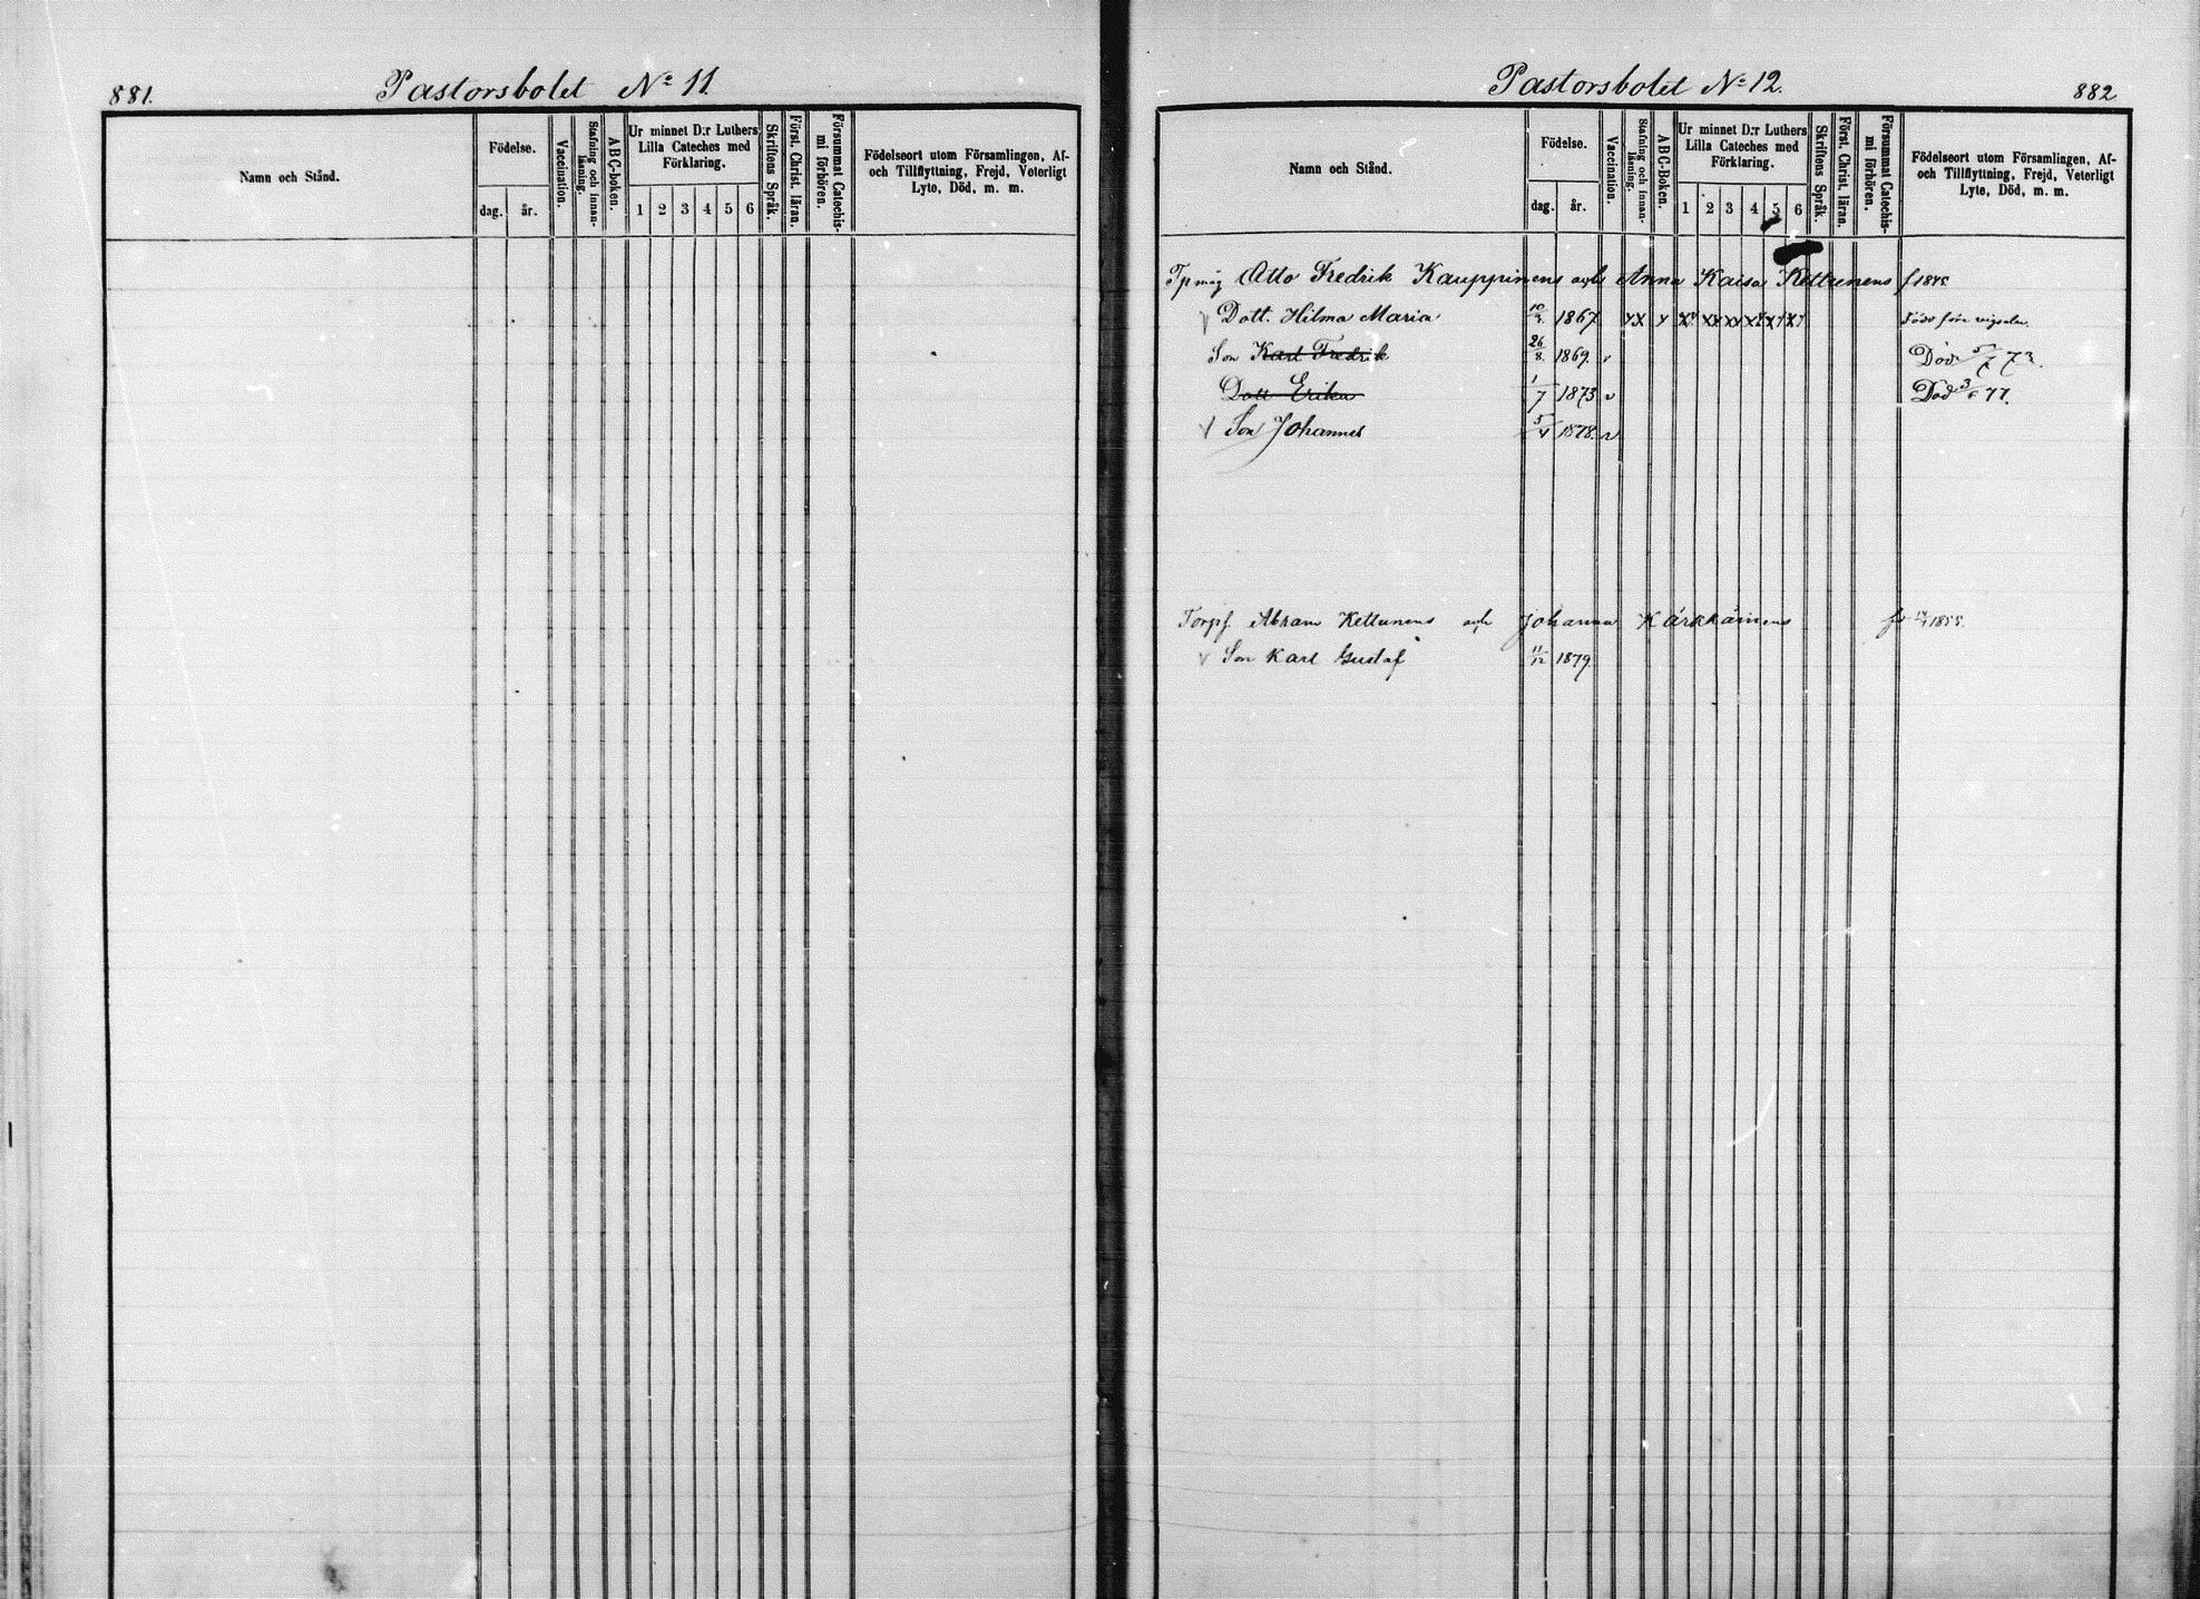 881.
Pastorsbolet No 11
Namn och Stånd.
Födelse.
dag.
år.
Vaccination.
Stafning och innan-
läsning.
ABC-boken.
Ur minnet D:r Luthers
Lilla Cateches med
Förklaring.
1 2 3 4 5 6
Skriftens Språk.
Först. Christ. läran.
Försummat Catechis-
mi förhören.
Födelseort utom Församlingen, Af-
och Tillflyttning, Frejd, Veterligt
Lyte, Död, m. m.
Pastorsbolet No 12.
882
Namn och Stånd.
Födelse.
dag.
år.
Vaccination.
Stafning och innan-
läsning.
ABC-Boken.
Ur minnet D:r Luthers
Lilla Cateches med
Förklaring.
1 2 3 4 5 6
Skriftens Språk.
Först. Christ. läran.
Försummat Catechis-
mi förhören.
Födelseort utom Församlingen, Af-
och Tillflyttning, Frejd, Veterligt
Lyte, Död, m. m.
Otto Fredrik Kauppinens och Anna Kaisa Kettunens
Dott. Hilma Maria 1867 Född före vigseln.
Son Karl Fredrik 26/8 1869. Död 73.
Dott Erika 1/7 1873 Död 77.
Son Johannes 5/4 1878.
Torpf. Abram Kettunens och Johanna Kärkkäinens
Son Karl Gustaf 11/12 1879.